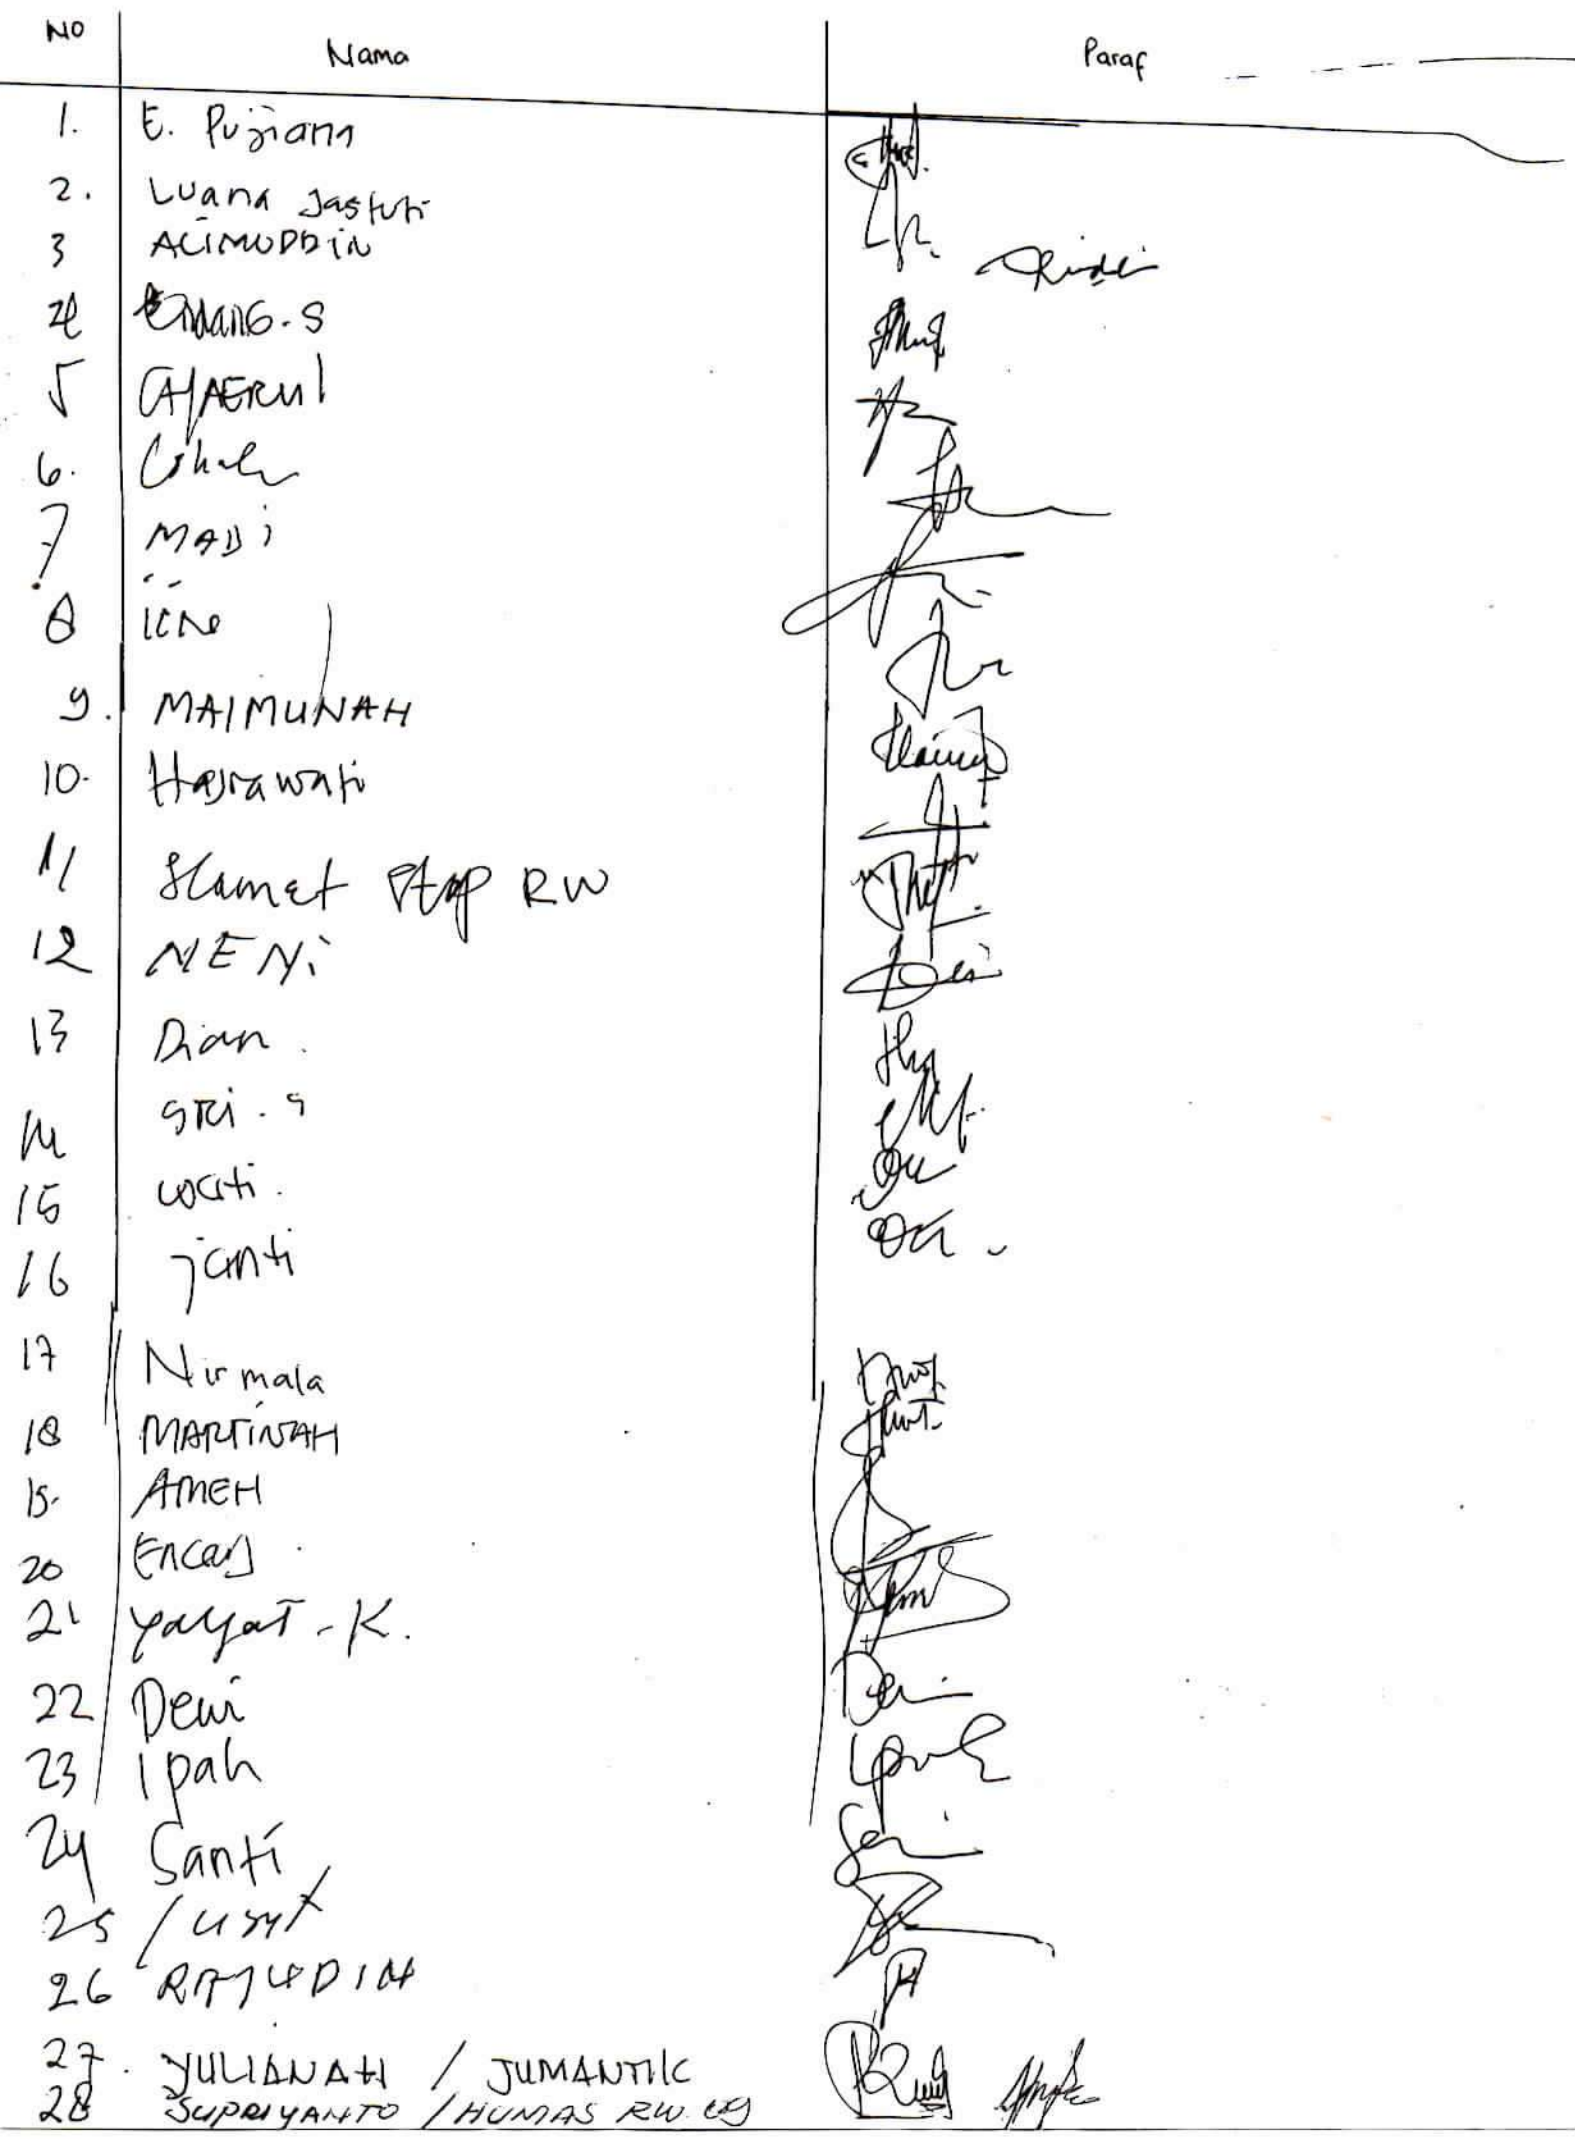 NO Nama Paraf
1. E. Pujiana
2. Luana Jastuti
3 ALIMUDDIN
4 Endang.S
5 CHAERUl
6.
7 MADi
8
9. MAIMUNAH
10. Hasrawati
11 Slamet Stap RW
12 NENi
13 Dian.
14 SRi.S
15 wati.
16 janti
17 Nirmala
18 MARTINAH
19. AMEH
20 Encas
21 Yayat-K.
22 Dewi
23 Ipah
24 Santi
25
26 RAJUDIN
27. YULIANAH / JUMANTIK
28 SUPRIYANTO / HUMAS RW. 09